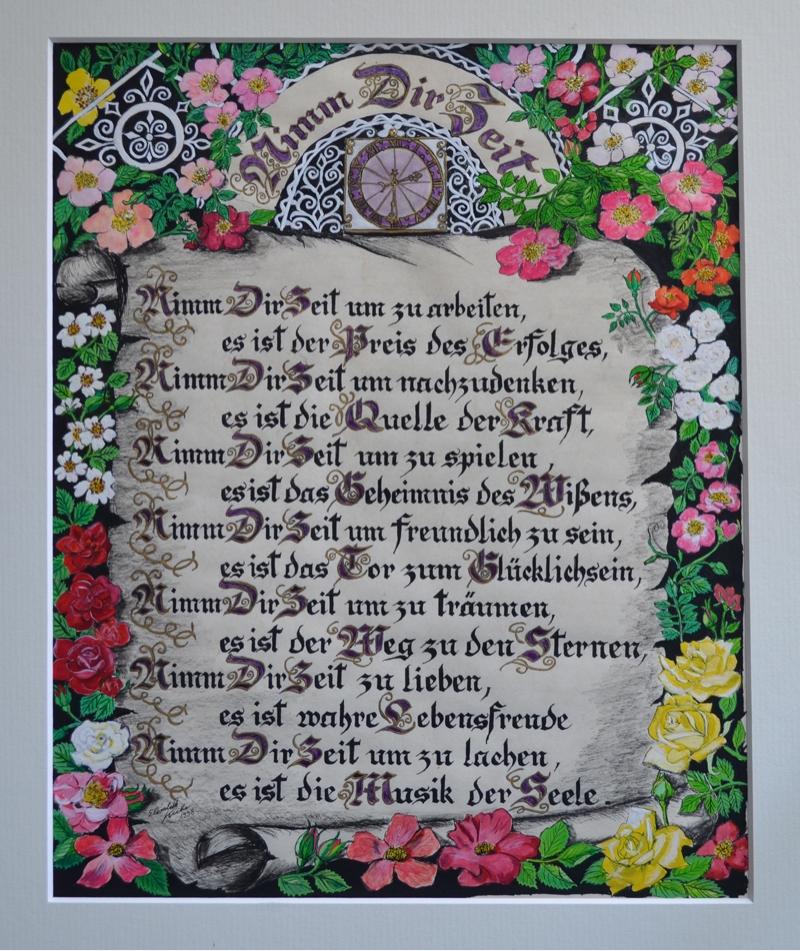 Nimm Dir Zeit
Nimm Dir Zeit um zu arbeiten,
es ist der Preis des Erfolges,
Nimm Dir Zeit um nachzudenken,
es ist die Quelle der Kraft,
Nimm Dir Zeit um zu spielen,
es ist das Geheimnis des Wißens,
Nimm Dir Zeit um freundlich zu sein,
es ist das Tor zum Glücklichsein,
Nimm Dir Zeit um zu träumen,
es ist der Weg zu den Sternen,
Nimm Dir Zeit zu lieben,
es ist wahre Lebensfreude
Nimm Dir Zeit um zu lachen,
es ist die Musik der Seele.